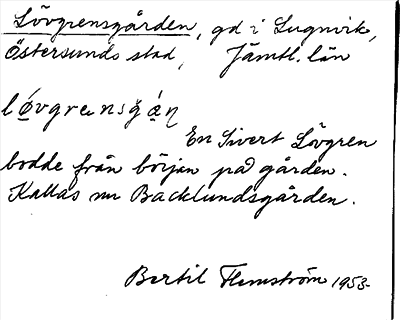 Lövgrensgården, gd i Lugnvik,
Östersunds stad, Jämtl. län
En Sivert Lövgren
bodde från början på gården.
Kallas nu Backlundsgården.
Bertil Flemström 1953